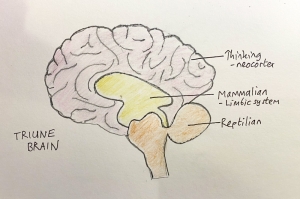 Thinking
- neocortex
Mammalian
- Limbic system
Reptilian
TRIUNE
BRAIN